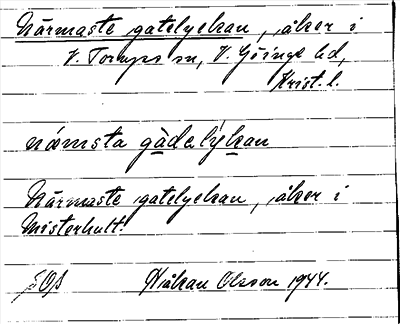 Närmaste gatelyckan, åker i
V. Torups sn, V. Göinge hd,
Krist. l.
næmsta gàdelýkan
Närmaste gatelyckan, åker i
Misterhult.
Håkan Olsson 1944.